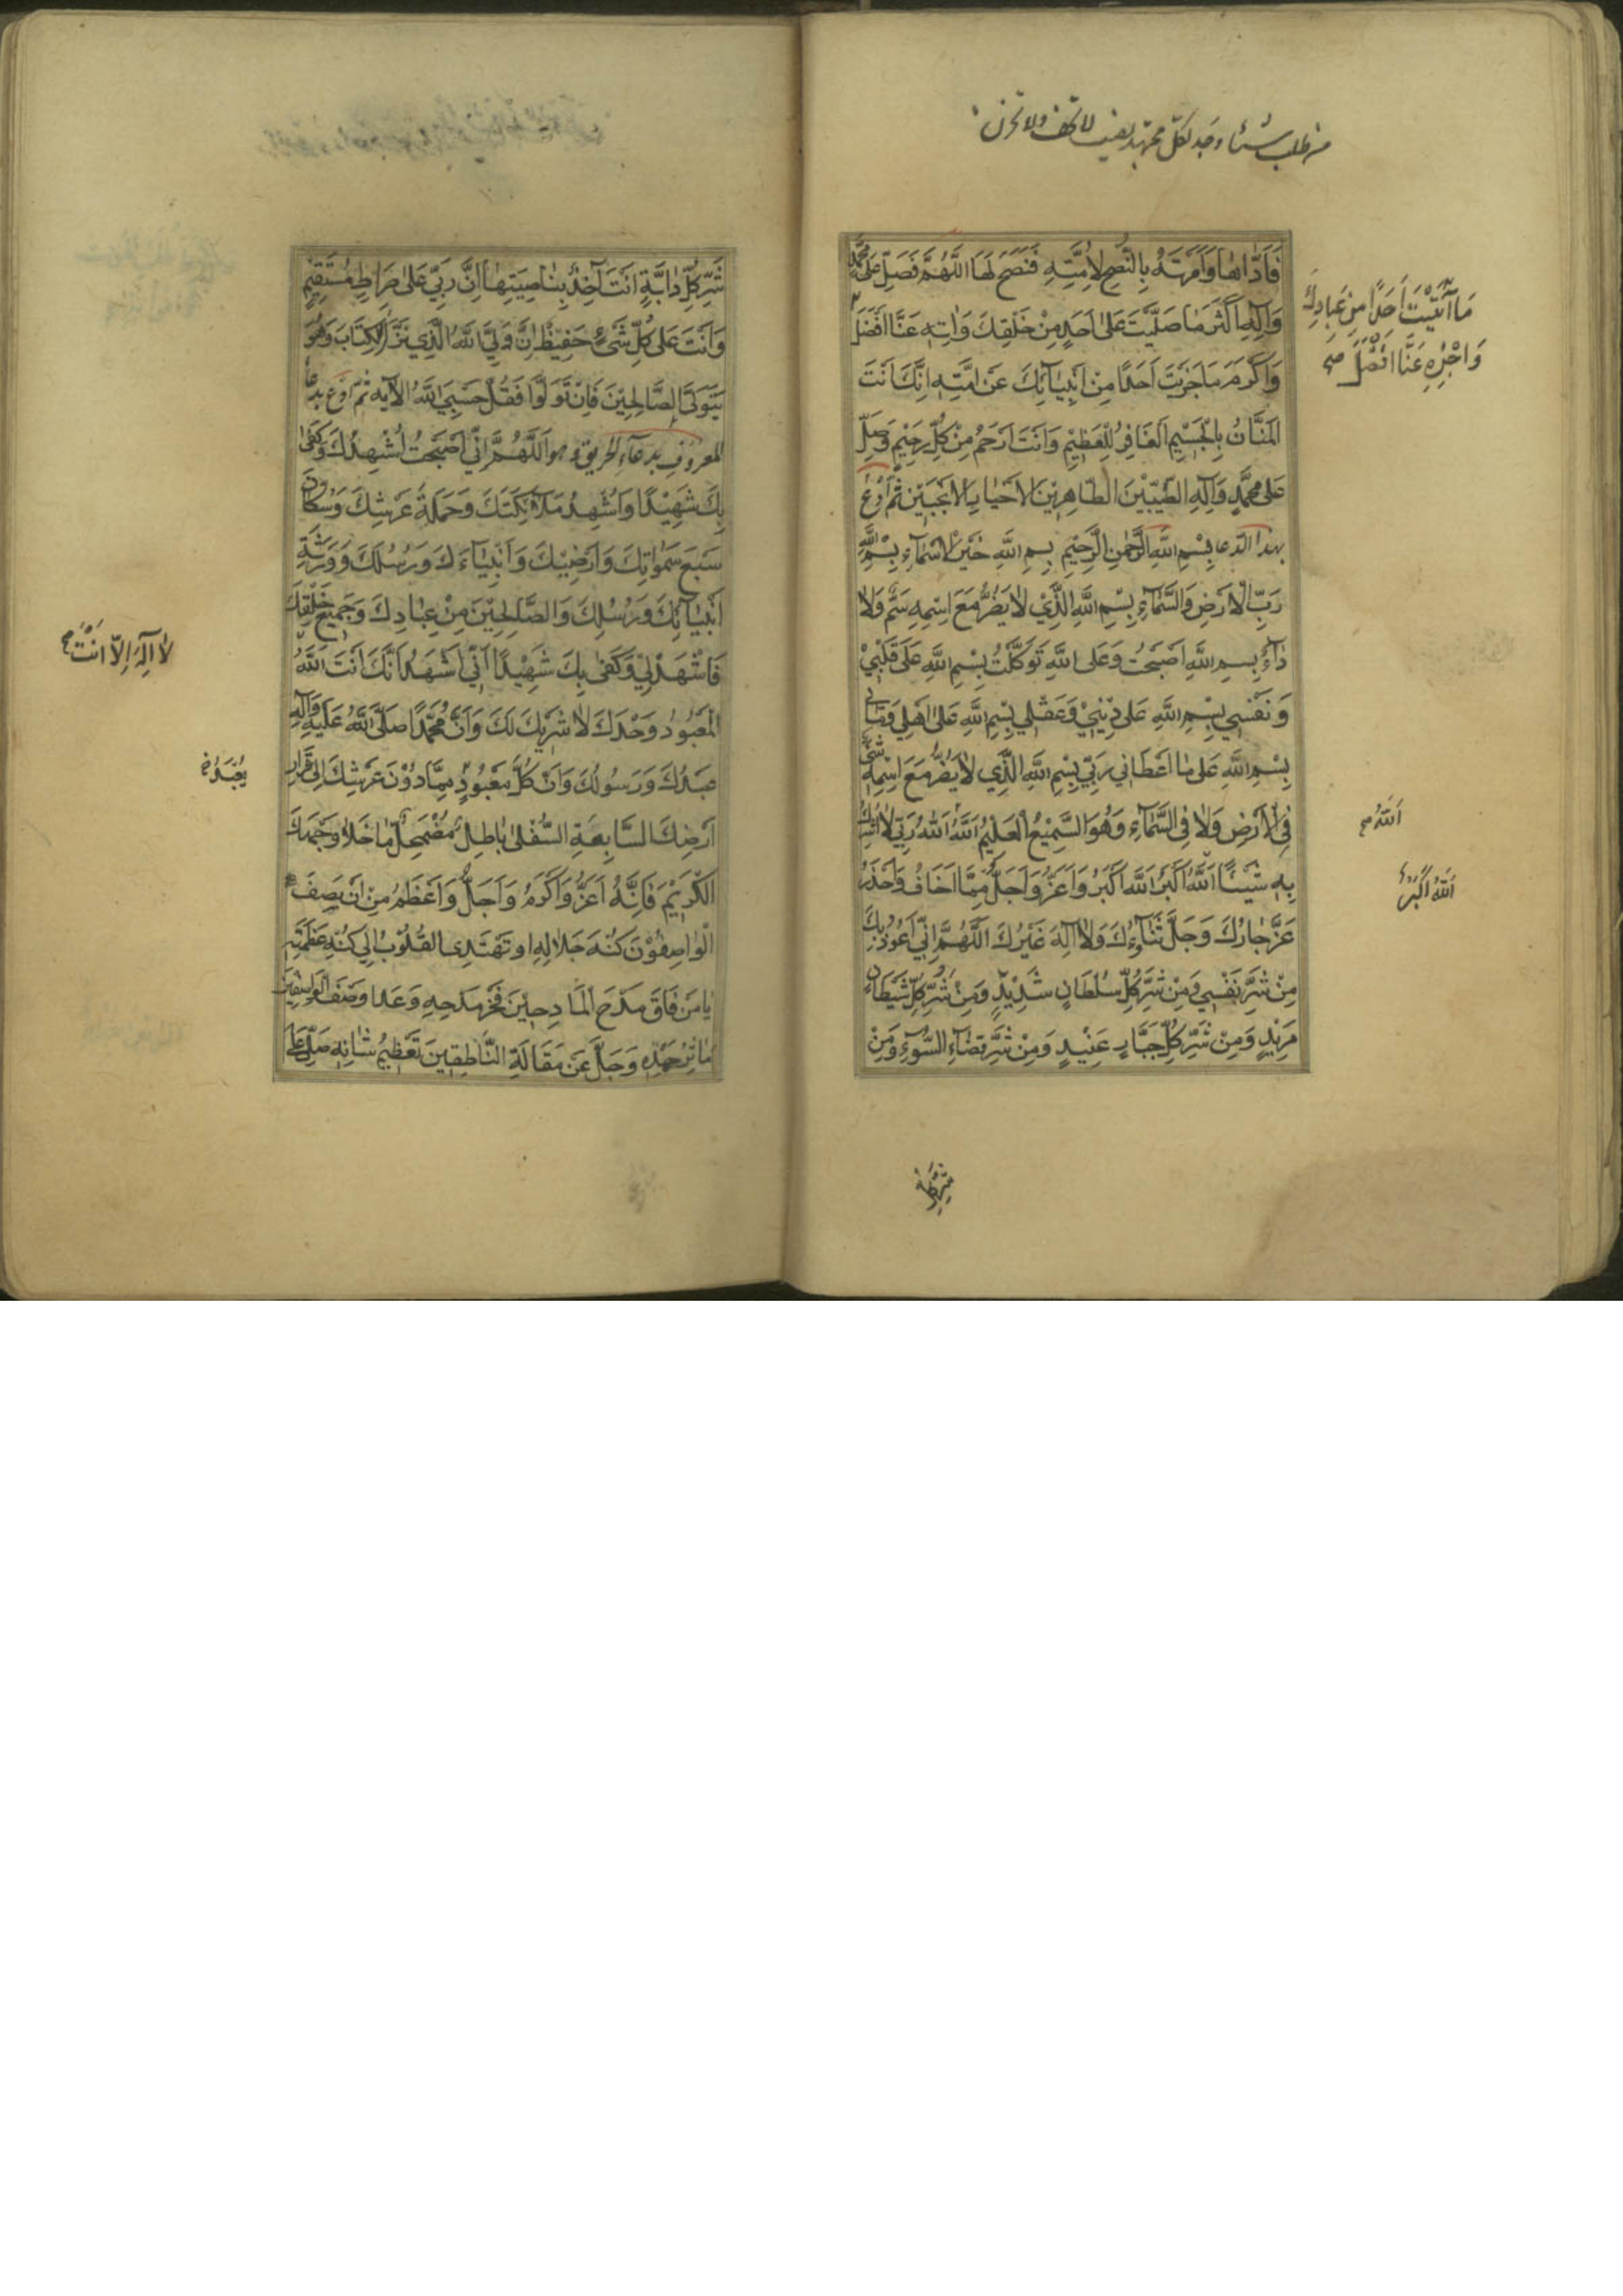 فَاَدّٰاهٰا وَاَمَرْتَهُ بِالنُّصْحِ لِاُمَّتِهِ فَنَصَحَ لَهَا اَللّٰهُمَّ فَصَلِّ عَلٰى مُحَمَّدٍ
وَآلِهِ اَكْثَرَ مٰا صَلَّيْتَ عَلٰى اَحَدٍ مِنْ خَلْقِكَ وَاٰتِهِ عَنَّا اَفْضَلَ
مَا آتَيْتَ اَحَدًا مِنْ عِبٰادِكَ
وَاجْزِهِ عَنَّا اَفْضَلَ صح
وَاَكْرَمَ مٰا جَزَيْتَ اَحَدًا مِنْ اَنْبِيٰآئِكَ عَنْ اُمَّتِهِ اِنَّكَ اَنْتَ
الْمَنَّانُ بِالْجَسِيْمِ الْغَافِرُ لِلْعَظِيْمِ وَاَنْتَ اَرْحَمُ مِنْ كُلِّ رَحِيْمٍ وَصَلِّ
عَلٰى مُحَمَّدٍ وَآلِهِ الطَّيِّبِيْنَ الطّٰاهِرِيْنَ الْاَخْيٰارِ الْاَنْجَبِيْنَ ثُمَّ ادْعُ
بهذا الدعا بِسْمِ اللّٰهِ الرَّحْمٰنِ الرَّحِيْمِ بِسْمِ اللّٰهِ خَيْرِ الْاَسْمٰآءِ بِسْمِ اللّٰهِ
رَبِّ الْاَرْضِ وَالسَّمٰآءِ بِسْمِ اللّٰهِ الَّذِيْ لٰا يَضُرُّ مَعَ اسْمِهِ سَمٌّ وَلٰا
دٰآءٌ بِسْمِ اللّٰهِ اَصْبَحْتُ وَعَلَى اللّٰهِ تَوَكَّلْتُ بِسْمِ اللّٰهِ عَلٰى قَلْبِيْ
وَنَفْسِي بِسْمِ اللّٰهِ عَلٰى دِيْنِيْ وَعَقْلِي بِسْمِ اللّٰهِ عَلٰى اَهْلِي وَمٰالِي
بِسْمِ اللّٰهِ عَلٰى مٰا اَعْطَانِي رَبِّي بِسْمِ اللّٰهِ الَّذِي لٰا يَضُرُّ مَعَ اسْمِهِ شَيْءٌ
فِي الْاَرْضِ وَلٰا فِي السَّمٰآءِ وَهُوَ السَّمِيْعُ الْعَلِيْمُ اَللّٰهُ اَللّٰهُ رَبِّي لٰا اُشْرِكُ
اَللّٰهُ صح
بِهِ شَيْئًا اَللّٰهُ اَكْبَرُ اَللّٰهُ اَكْبَرُ وَاَعَزُّ وَاَجَلُّ مِمَّا اَخَافُ وَاَحْذَرُ
اَللّٰهُ اَكْبَرُ
عَزَّ جٰارُكَ وَجَلَّ ثَنٰآؤُكَ وَلٰا اِلٰهَ غَيْرُكَ اَللّٰهُمَّ اِنِّي اَعُوذُ بِكَ
مِنْ شَرِّ نَفْسِي وَمِنْ شَرِّ كُلِّ سُلْطَانٍ شَدِيْدٍ وَمِنْ شَرِّ كُلِّ شَيْطَانٍ
مَرِيْدٍ وَمِنْ شَرِّ كُلِّ جَبَّارٍ عَنِيْدٍ وَمِنْ شَرِّ قَضٰآءِ السُّوْءِ وَمِنْ
شَرِّ كُلِّ دٰابَّةٍ اَنْتَ آخِذٌ بِنٰاصِيَتِهٰا اِنَّ رَبِّي عَلٰى صِرَاطٍ مُسْتَقِيْمٍ
وَاَنْتَ عَلٰى كُلِّ شَيْءٍ حَفِيْظٌ اِنَّ وَلِيِّيَ اللّٰهُ الَّذِي نَزَّلَ الْكِتَابَ وَهُوَ
يَتَوَلَّى الصَّالِحِيْنَ فَاِنْ تَوَلَّوْا فَقُلْ حَسْبِيَ اللّٰهُ الآيه ثُمَّ ادْعُ بدعآء
المعروف بدعآء الحريق وهو اَللّٰهُمَّ اِنِّي اَصْبَحْتُ اُشْهِدُكَ وَكَفٰى
بِكَ شَهِيْدًا وَاُشْهِدُ مَلٰآئِكَتَكَ وَحَمَلَةَ عَرْشِكَ وَسُكّٰانَ
سَبْعِ سَمٰوٰاتِكَ وَاَرَضِيْكَ وَاَنْبِيٰآءَكَ وَرُسُلَكَ وَوَرَثَةَ
اَنْبِيٰآئِكَ وَرُسُلِكَ وَالصّٰالِحِيْنَ مِنْ عِبٰادِكَ وَجَمِيْعَ خَلْقِكَ
فَاشْهَدْ لِي وَكَفٰى بِكَ شَهِيْدًا اَنِّي اَشْهَدُ اَنَّكَ اَنْتَ اللّٰهُ
لٰا اِلٰهَ اِلّٰا اَنْتَ صح
الْمَعْبُوْدُ وَحْدَكَ لٰا شَرِيْكَ لَكَ وَاَنَّ مُحَمَّدًا صَلَّى اللّٰهُ عَلَيْهِ وَآلِهِ
عَبْدُكَ وَرَسُولُكَ وَاَنَّ كُلَّ مَعْبُوْدٍ مِمّٰا دُوْنَ عَرْشِكَ اِلٰى قَرٰارِ
يُعْبَدُ
اَرْضِكَ السّٰابِعَةِ السُّفْلٰى بٰاطِلٌ مُضْمَحِلٌّ مٰا خَلٰا وَجْهَكَ
الْكَرِيْمَ فَاِنَّهُ اَعَزُّ وَاَكْرَمُ وَاَجَلُّ وَاَعْظَمُ مِنْ اَنْ يَصِفَ
الْوٰاصِفُوْنَ كُنْهَ جَلٰالِهِ او تَهْتَدِيَ الْقُلُوْبُ اِلٰى كُنْهِ عَظَمَتِهِ
يٰا مَنْ فَاقَ مَدْحَ الْمٰادِحِيْنَ فَخْرُ مَدْحِهِ وَعَدٰا وَصْفَ الْوٰاصِفِيْنَ
مَآثِرُ حَمْدِهِ وَجَلَّ عَنْ مَقَالَةِ النّٰاطِقِيْنَ تَعْظِيْمُ شٰانِهِ صَلِّ عَلٰى